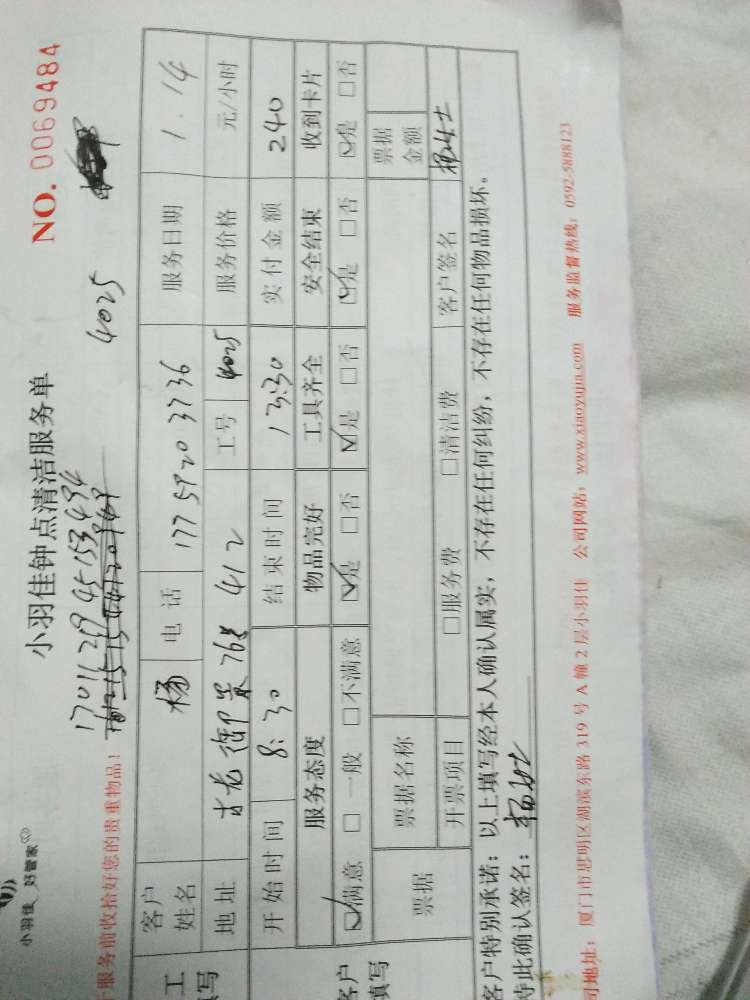 小羽佳 好管家
小羽佳钟点清洁服务单
NO. 0069484
服务前收拾好您的贵重物品!
4025
客户姓名 杨 电话 177 5920 3736 服务日期 1.14
地址 古龙御景 76号 412 工号 4025 服务价格 元/小时
开始时间 8:30 结束时间 13:30 实付金额 240
服务态度 物品完好 工具齐全 安全结束 收到卡片
☑满意 □一般 □不满意 ☑是 □否 ☑是 □否 ☑是 □否 ☑是 □否
票据 票据名称 票据金额
开票项目 □服务费 □清洁费 客户签名 杨女士
客户特别承诺:以上填写经本人确认属实,不存在任何纠纷,不存在任何物品损坏。
特此确认签名:杨女士
司地址:厦门市思明区湖滨东路 319 号 A 幢 2 层小羽佳 公司网站:www.xiaoyujia.com 服务监督热线:0592-5888123